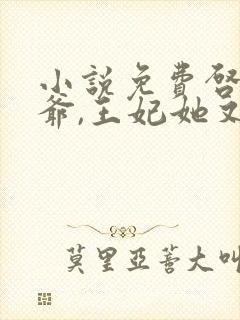 小說免費啓
爺,王妃她又
莫里亞蒼大叫